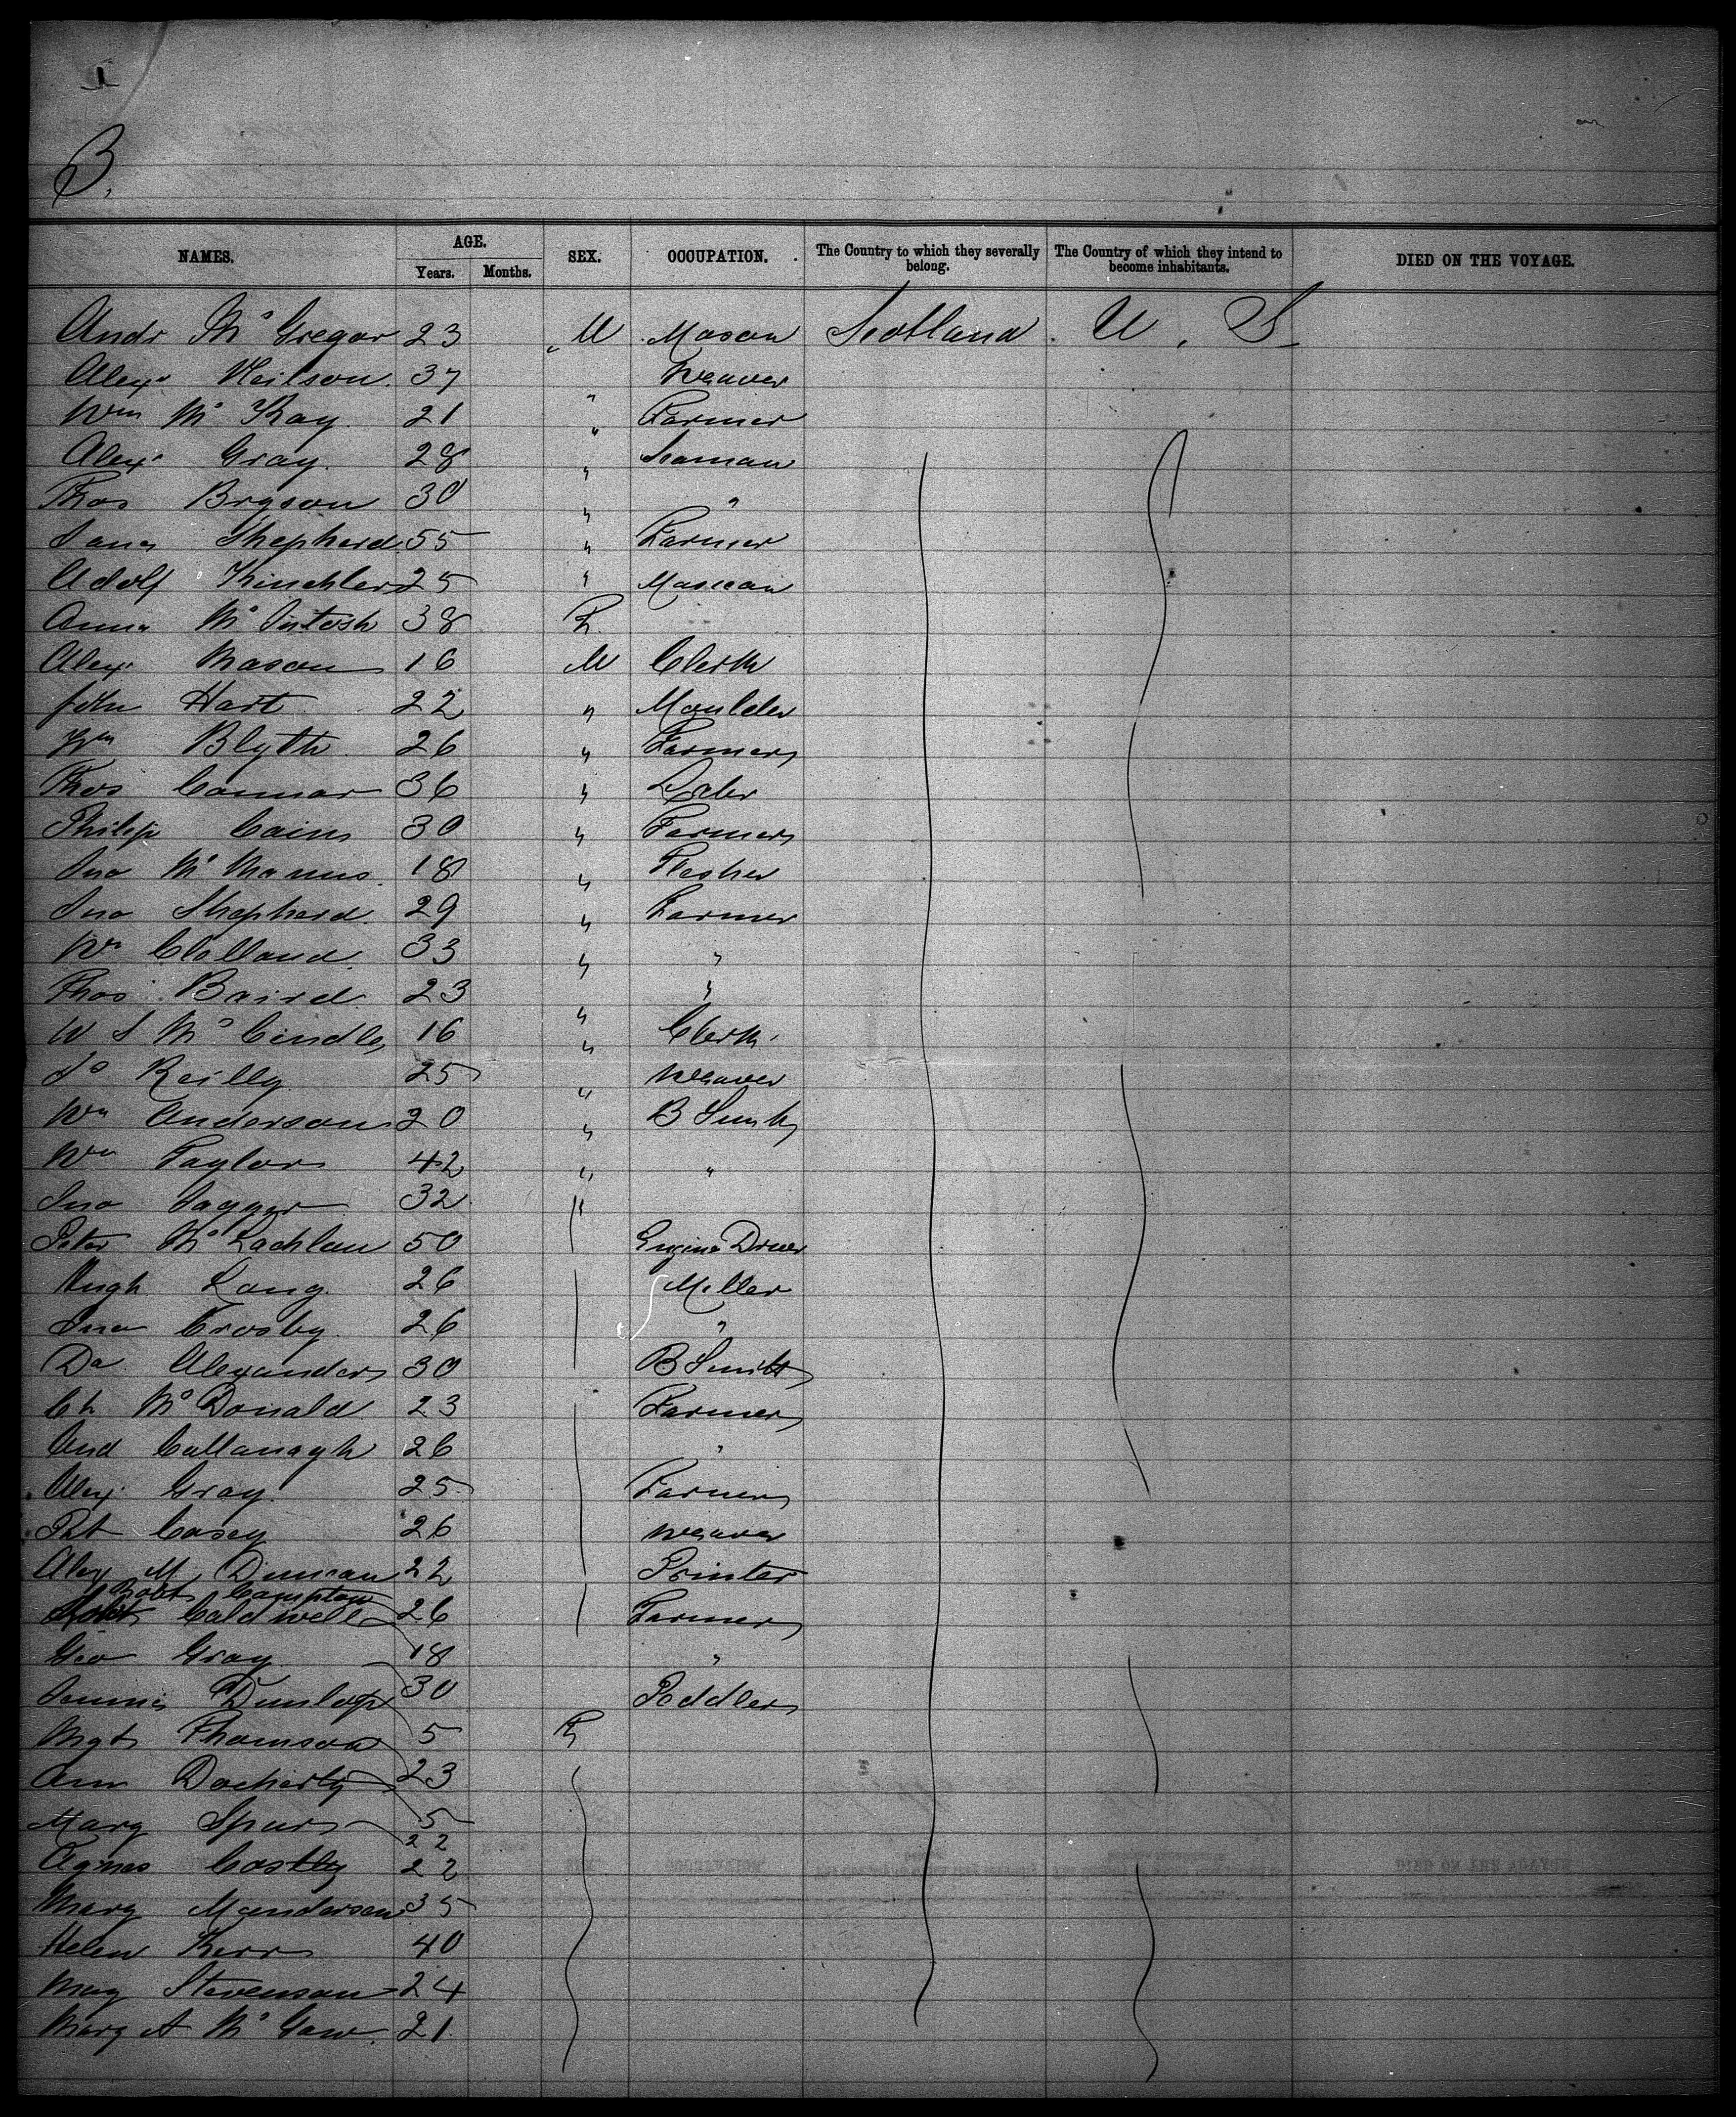 1
B.
NAMES. AGE. SEX. OCCUPATION. The Country to which they severally belong. The Country of which they intend to become inhabitants. DIED ON THE VOYAGE.
Years. Months.
Andr Mc Gregor 23 M Mason Scotland U. S
Alexr Neilson 37 " Weaver
Wm Mc Kay 21 " Farmer
Alexr Gray 28 " Seaman
Thos Bryson 30 " "
James Shepherd 55 " Farmer
Adolf 25 " Musician
Anna Mc Intosh 38 F
Alexr Mason 16 M Clerk
John Hart 22 " Moulder
Wm Blyth 26 " Farmer
Thos Connar 36 " Labr
Philip Cain 30 " Farmer
Jno Mc Manus 18 " Flesher
Jno Shepherd 29 " Farmer
Wm Clelland 33 " "
Thos Baird 23 " "
W S Mc 16 " Clerk
Jo Reilly 25 " Weaver
Wm Anderson 20 " B Smith
Wm Taylor 42 " "
Jno 32 "
Peter Mc Lachlan 50 Engine Driver
Hugh Lang 26 Miller
Jno Crosby 26 "
Da Alexander 30 B Smith
Ch Mc Donald 23 Farmer
And Cullanagh 26 "
Alexr Gray 25 Farmer
Pat Casey 26 Weaver
Alex M Duncan 22 Printer
Robt Campton
Robt Caldwell 26 Farmer
Geo Gray 18 "
Dunlop 30 Peddler
Mgt Thomson 5 F
Ann Docherty 23
Mary Spurs 5
22
Agnes Costly 22
Mary Manderson 35
Helen Kerr 40
Mag Stevenson 24
Marg A Mc Gaw 21